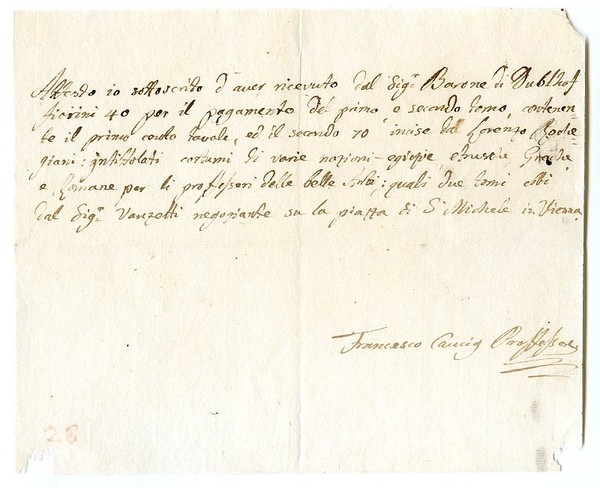 Attesto io sottoscrito d'aver ricevuto dal Sig.r Barone di Dublhof
fiorini 40 per il pagamento del primo, e secondo tomo, contenen-
te il primo cento tavole, ed il secondo 70 incise dal Lorenzo Roche-
giani: intitolati costumi di varie nazioni egizie etrusche Greche,
e Romane per li professori delle belle Arti: quali due tomi ebbi
dal Sig.r Vanzetti negoziante su la piazza di S. Michele in Vienna.
Francesco Caucig Professore
28